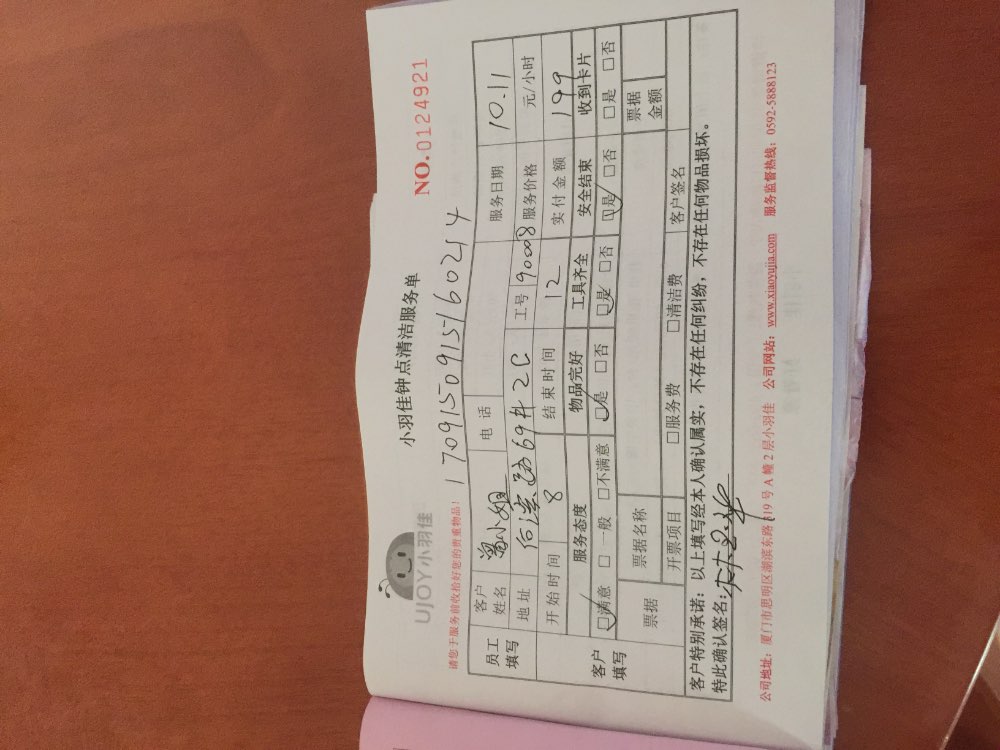 小羽佳钟点清洁服务单
UJOY小羽佳
NO.0124921
请您于服务前收拾好您的贵重物品!
170915091516021 4
员工填写 客户姓名 小姐 电话 服务日期 10.11
地址 69# 2C 工号 90008 服务价格 元/小时
客户填写 开始时间 8 结束时间 12 实付金额 199
服务态度 物品完好 工具齐全 安全结束 收到卡片
☑满意 □一般 □不满意 ☑是 □否 ☑是 □否 ☑是 □否 □是 □否
票据 票据名称 票据金额
开票项目 □服务费 □清洁费 客户签名
客户特别承诺:以上填写经本人确认属实,不存在任何纠纷,不存在任何物品损坏。
特此确认签名:
公司地址:厦门市思明区湖滨东路319号A幢2层小羽佳 公司网站:www.xiaoyujia.com 服务监督热线:0592-5888123